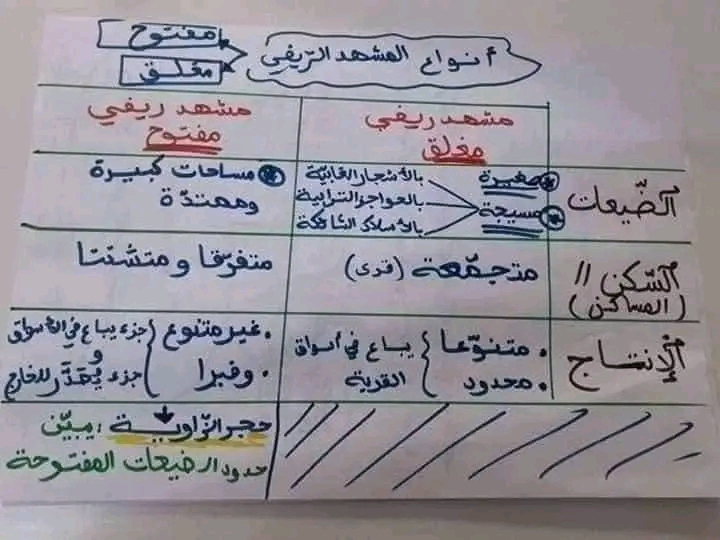 أنواع المشهد الريفي
مفتوح
مغلق
مشهد ريفي
مغلق
مشهد ريفي
مفتوح
الضّيعات
صغيرة
مسيجة
بالأشجار الغابيّة
بالحواجز الترابية
بالأسلاك الشائكة
مساحات كبيرة
وممتدّة
السّكن //
(المساكن)
متجمّعة (قرى)
متفرّقا و متشتتا
الإنتاج
. متنوّعا
. محدود
يباع في أسواق
القرية
. غير متنوع
. وفيرا
جزء يباع في الأسواق
و
جزء يُصَدَّر للخارج
حجر الزّاوية : يبيّن
حدود الضيعات المفتوحة